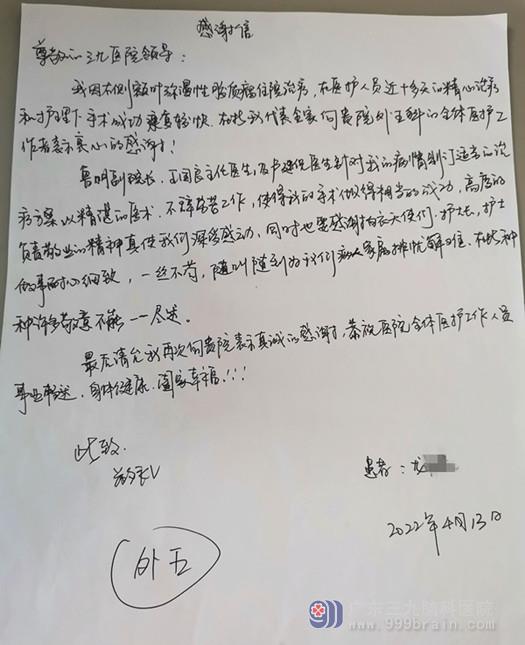 感谢信
尊敬的三九医院领导:
我因右侧额叶弥漫性胶质瘤住院治疗,在医护人员近十多天的精心治疗
和护理下手术成功,康复较快.在此我代表全家向贵院外五科的全体医护工
作者表示衷心的感谢!
鲁明副院长、王国良主任医生,及卢建侃医生针对我的病情制订适当的治
疗方案以精湛的医术、不辞劳苦工作,使得我的手术做得相当的成功,高度的
负责敬业的精神真使我们深受感动,同时也要感谢白衣天使们.护士长,护士
做事耐心细致,一丝不苟,随叫随到为我们病人家属排忧解难.在此种
种许多敬意不能一一尽述.
最后请允我再次向贵院表示真诚的感谢,恭祝医院全体医护工作人员
事业畅达.身体健康.阖家幸福!!!
此致
敬礼
患者:龙
2022年4月13日
外五
广东三九脑科医院
www.999brain.com